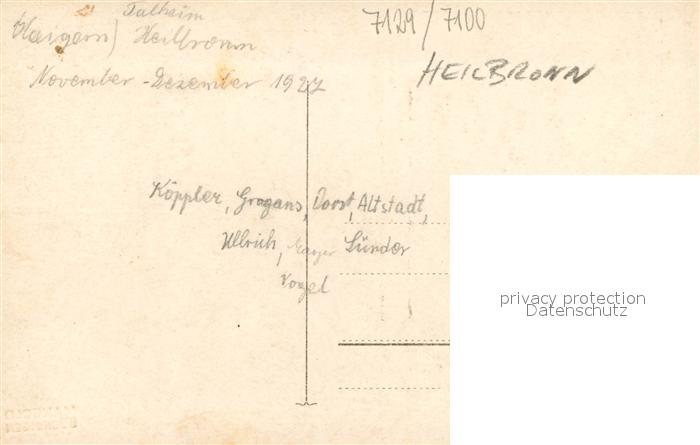 Talheim
(Haigern) Heilbronn
November - Dezember 1927
7129/7100
HEILBRONN
Köppler, Grogans, Dorst, Altstadt,
Ullrich, Mayer Sünder
Vogel
privacy protection
Datenschutz